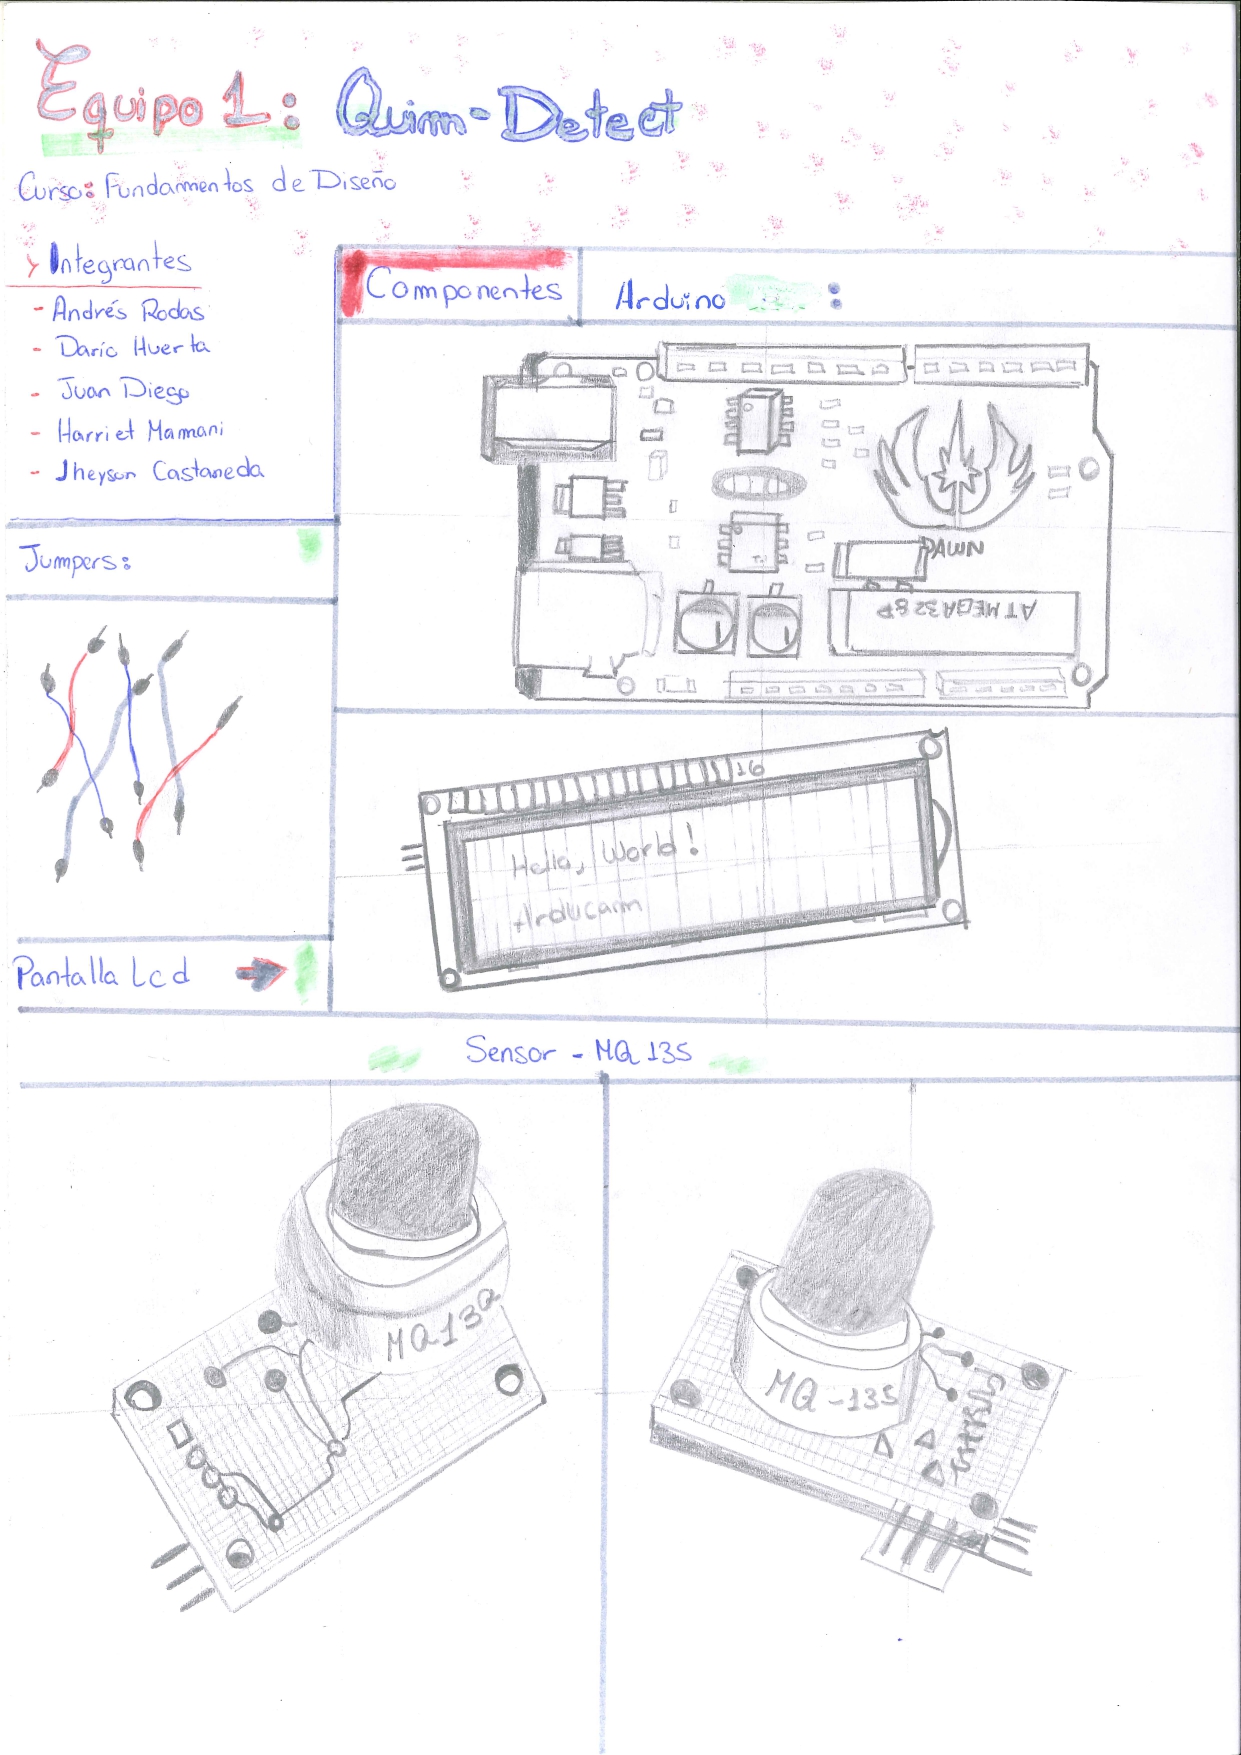 Equipo 1: Quim-Detect
Curso: Fundamentos de Diseño
Integrantes
- Andrés Rodas
- Darío Huerta
- Juan Diego
- Harriet Mamani
- Jheyson Castaneda
Componentes
Arduino :
DAWN
ATMEGA328P
Jumpers:
16
Hello, World!
Arducam
Pantalla Lcd
Sensor - MQ 135
MQ13
MQ-135